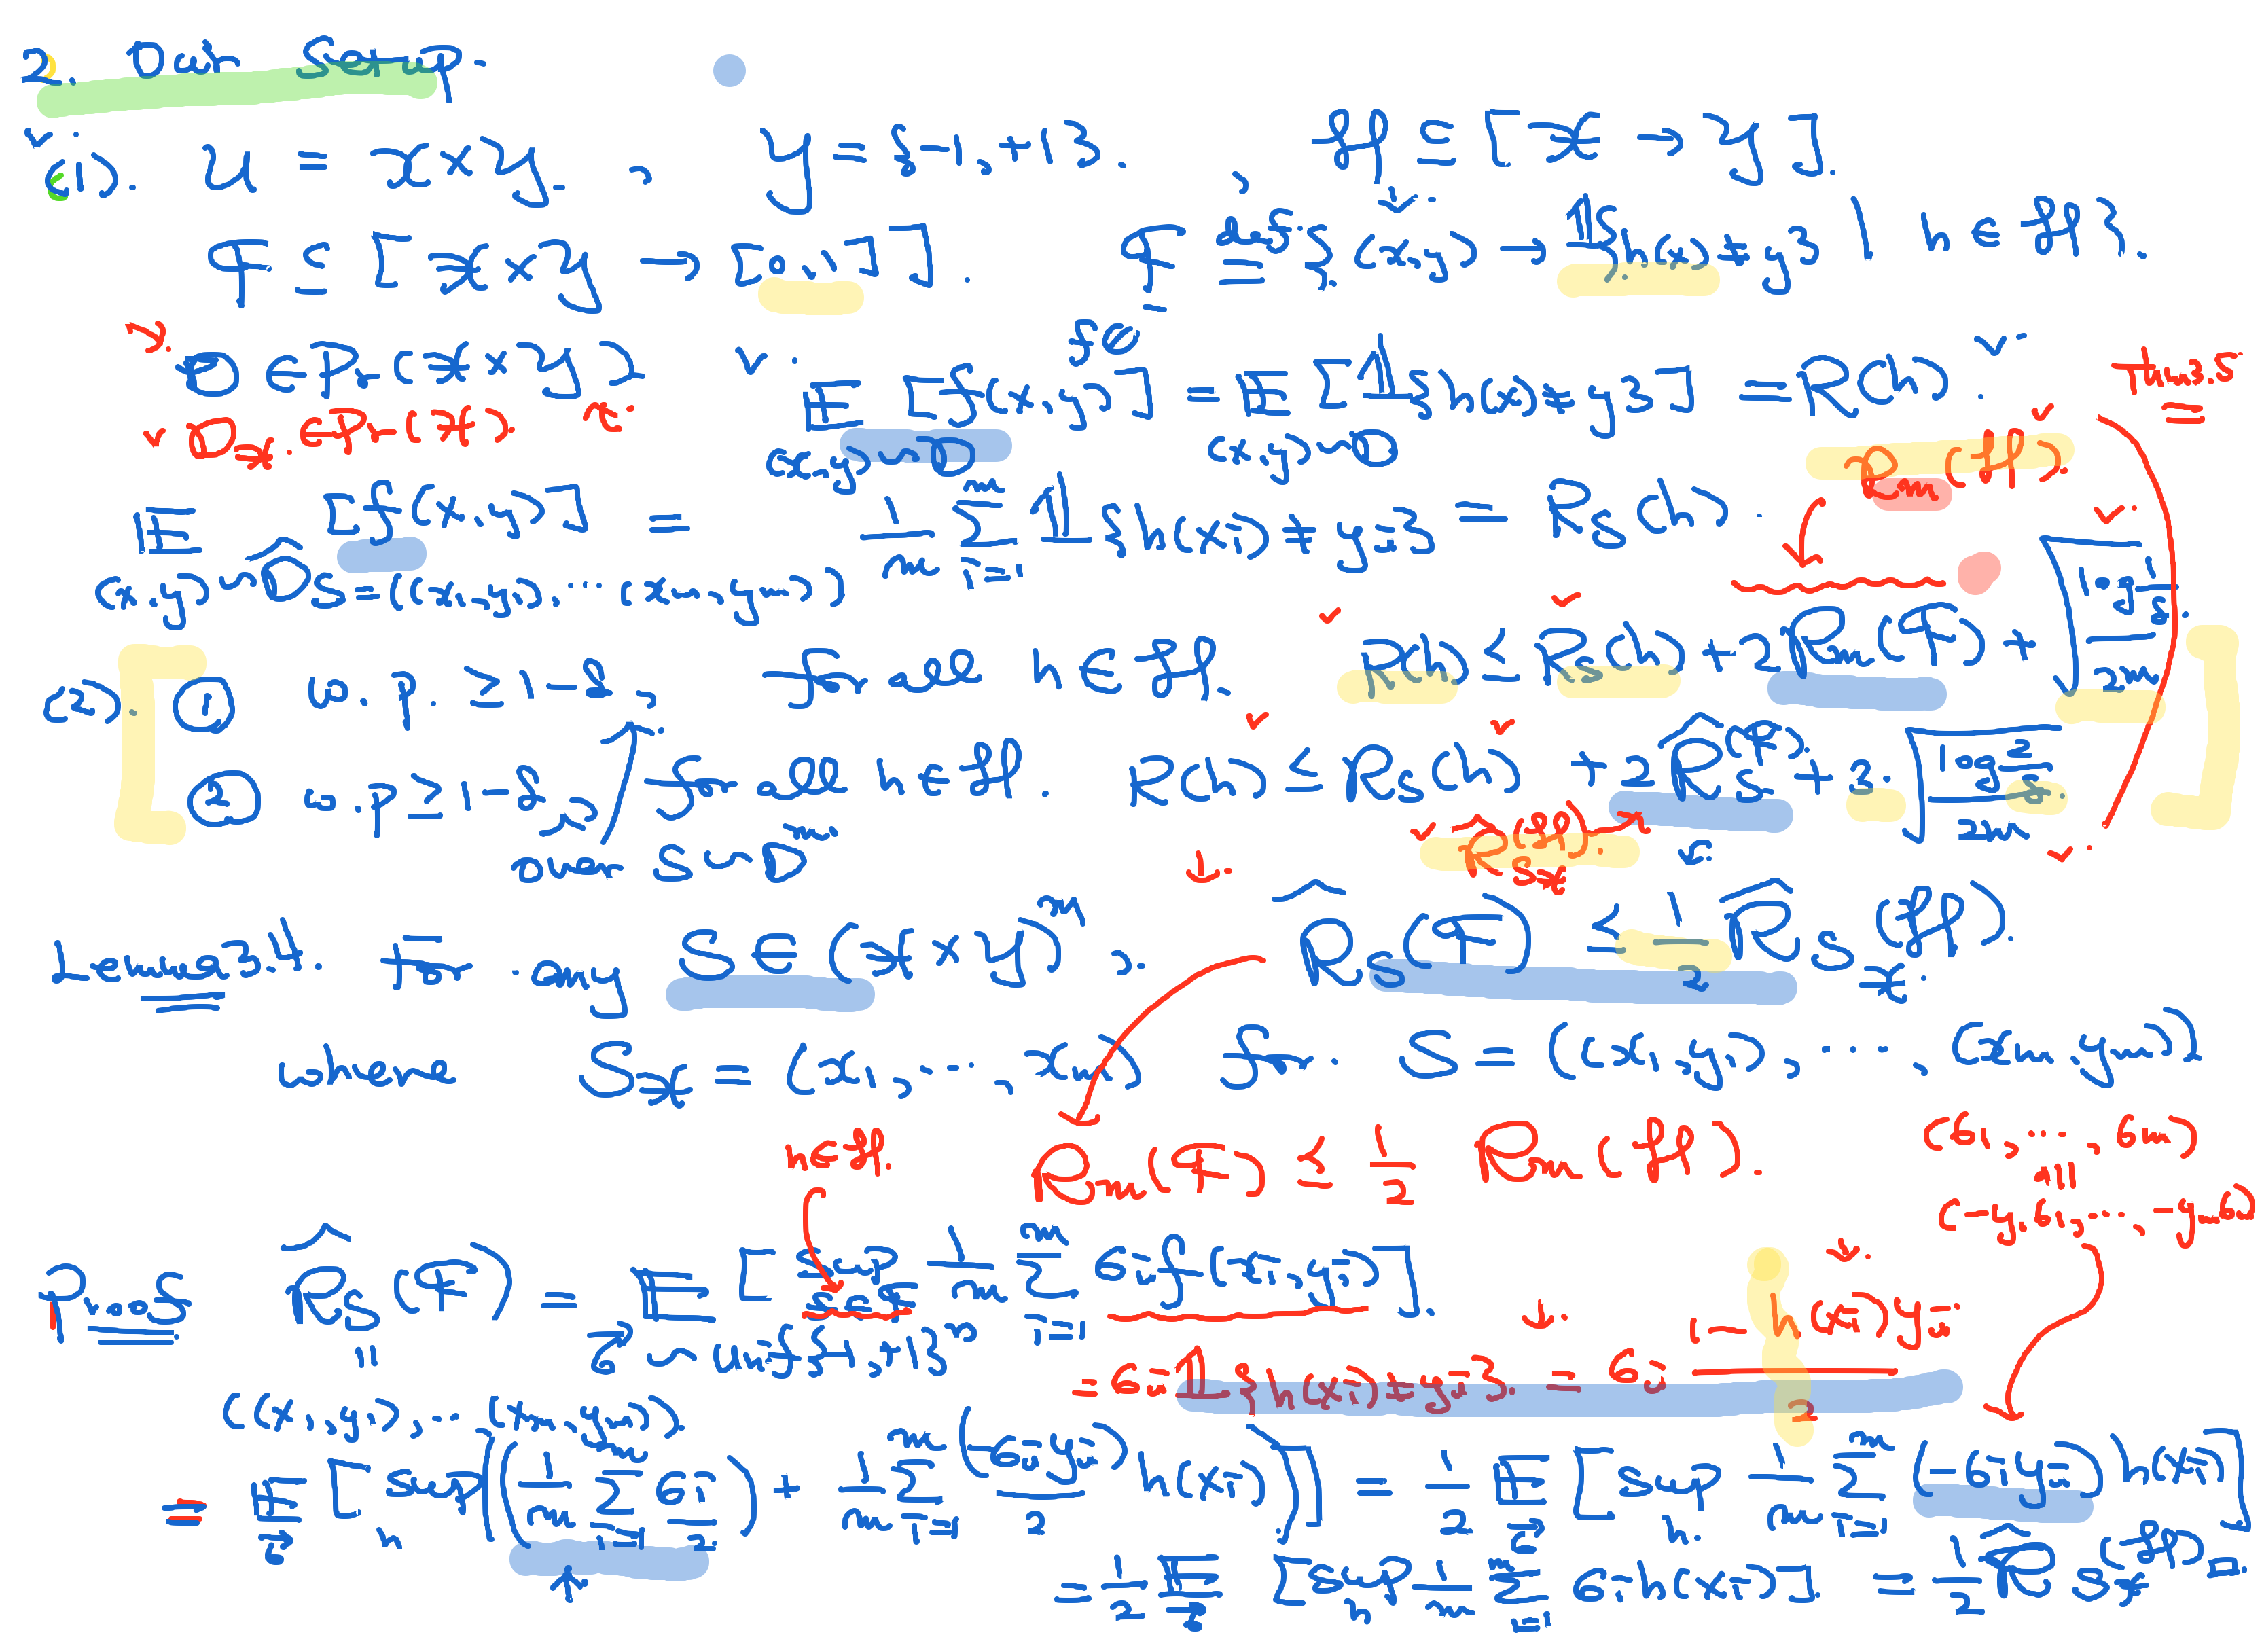 2. Our Setup.
(1). U = X × Y , Y = {-1, +1}. , H ⊆ [X → Y].
F ⊆ [X × Y → [0,1]]. F def= {(x,y) → 𝟙{h(x) ≠ y} | h ∈ H}.
D ∈ Pr(X × Y) 𝔼_{(x,y)~D} [f(x,y)] = 𝔼_{(x,y)~D} [𝟙{h(x) ≠ y}] = R(h). Thm 3.5
D_X ∈ Pr(X). R_m(H).
𝔼_{(x,y)~D̂_{S=((x₁,y₁),…(x_m,y_m))}} [f(x,y)] = 1/m Σ_{i=1}^m 𝟙{h(x_i) ≠ y_i} = R_S(h).
(2). ① w.p. ≥ 1-δ, for all h ∈ H. R(h) ≤ R_S(h) + 2R_m(F) + √(log 1/δ / 2m)
② w.p ≥ 1-δ, for all h ∈ H. R(h) ≤ R_S(h) + 2R̂_S(F) + 3·√(log 2/δ / 2m)
over S ~ D^m R̂_{S_X}(H).
Lemma 3.4. For any S ∈ (X × Y)^m, R̂_S(F) ≤ 1/2 R̂_{S_X}(H).
where S_X = (x₁, …, x_m) for S = ((x₁,y₁), …, (x_m,y_m))
h∈H. R_m(F) ≤ 1/2 R_m(H). (σ₁, …, σ_m)
(-y₁σ₁, …, -y_mσ_m)
Proof R̂_S(F) = 𝔼_{σ⃗ ~ unif{-1,+1}^m} [sup_{f∈F} 1/m Σ_{i=1}^m σ_i f(x_i,y_i)].
= σ_i 𝟙{h(x_i) ≠ y_i}. = σ_i (1 - h(x_i)y_i)/2
((x₁,y₁),…(x_m,y_m))
= 𝔼_σ⃗ [sup_h ((1/m Σ_{i=1}^m σ_i/2) + 1/m Σ_{i=1}^m (-σ_i y_i)/2 h(x_i))] = 1/2 𝔼_σ⃗ [sup_h 1/m Σ_{i=1}^m (-σ_i y_i) h(x_i)]
= 1/2 𝔼_σ⃗ [sup_h 1/m Σ_{i=1}^m σ_i h(x_i)] = 1/2 R̂_{S_X}(H) □.